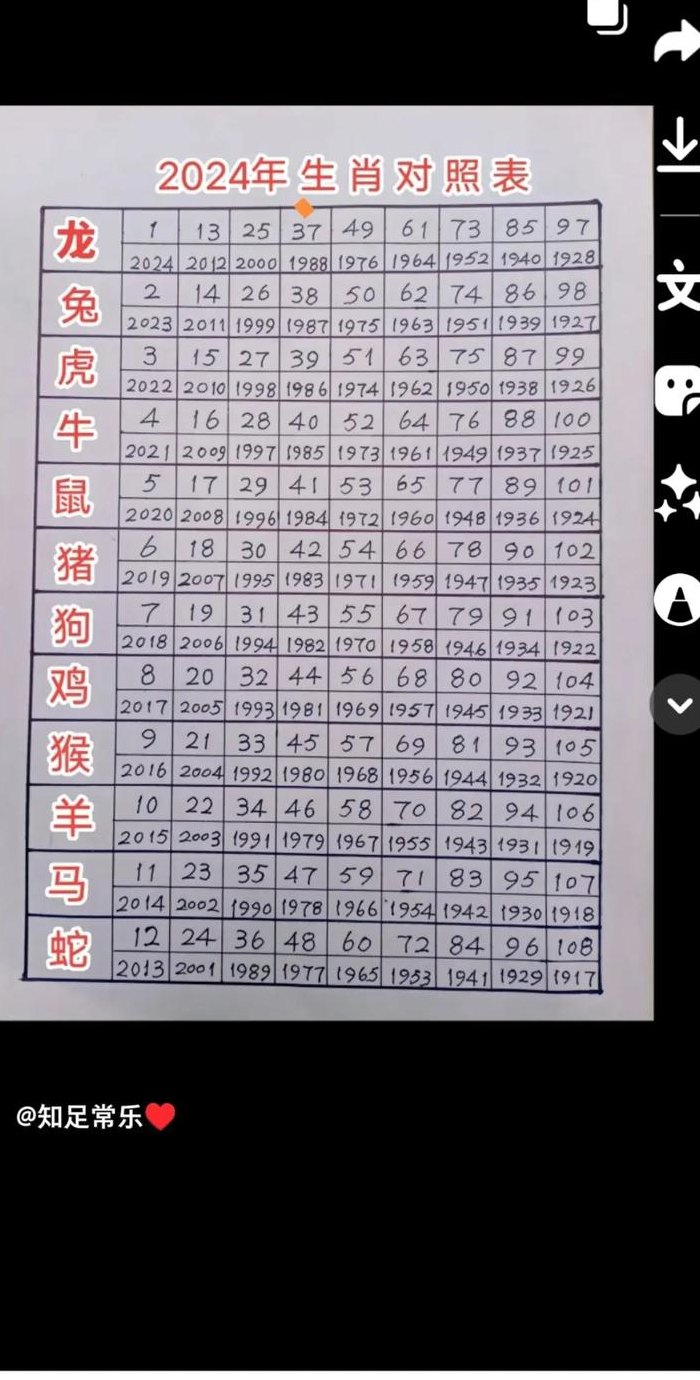 2024年生肖对照表
龙 1 13 25 37 49 61 73 85 97
2024 2012 2000 1988 1976 1964 1952 1940 1928
兔 2 14 26 38 50 62 74 86 98
2023 2011 1999 1987 1975 1963 1951 1939 1927
虎 3 15 27 39 51 63 75 87 99
2022 2010 1998 1986 1974 1962 1950 1938 1926
牛 4 16 28 40 52 64 76 88 100
2021 2009 1997 1985 1973 1961 1949 1937 1925
鼠 5 17 29 41 53 65 77 89 101
2020 2008 1996 1984 1972 1960 1948 1936 1924
猪 6 18 30 42 54 66 78 90 102
2019 2007 1995 1983 1971 1959 1947 1935 1923
狗 7 19 31 43 55 67 79 91 103
2018 2006 1994 1982 1970 1958 1946 1934 1922
鸡 8 20 32 44 56 68 80 92 104
2017 2005 1993 1981 1969 1957 1945 1933 1921
猴 9 21 33 45 57 69 81 93 105
2016 2004 1992 1980 1968 1956 1944 1932 1920
羊 10 22 34 46 58 70 82 94 106
2015 2003 1991 1979 1967 1955 1943 1931 1919
马 11 23 35 47 59 71 83 95 107
2014 2002 1990 1978 1966 1954 1942 1930 1918
蛇 12 24 36 48 60 72 84 96 108
2013 2001 1989 1977 1965 1953 1941 1929 1917
@知足常乐❤️